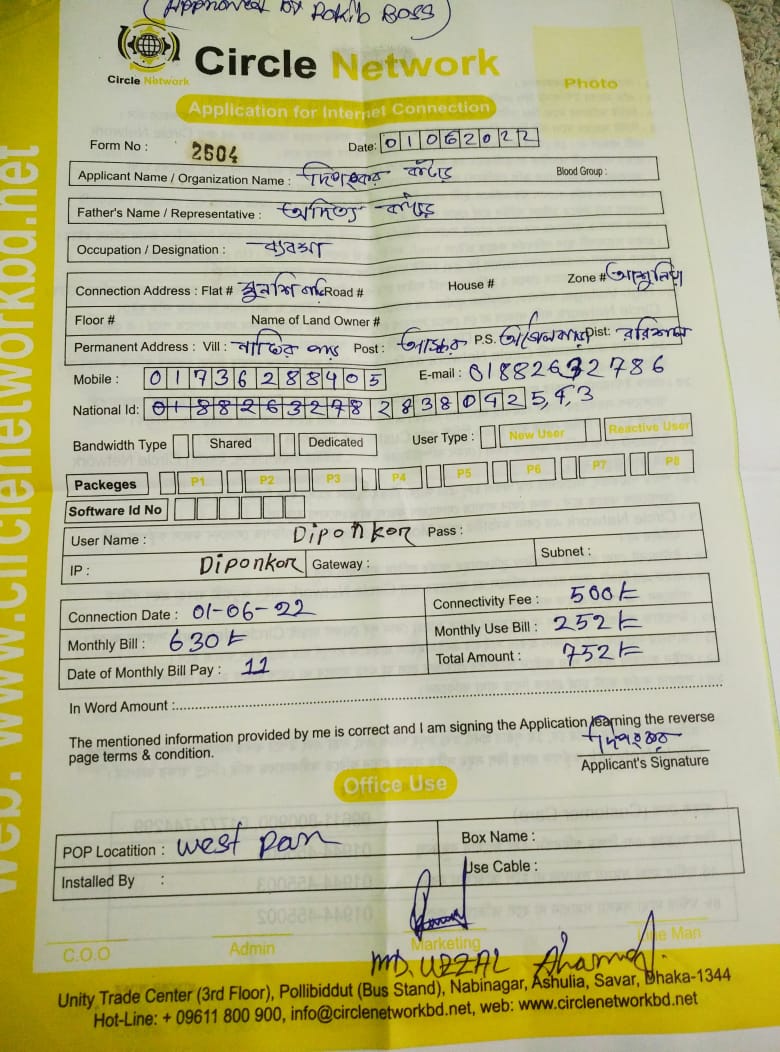 (Approved by Rokib BOSS)
Circle Network
Circle Network
Photo
Application for Internet Connection
Form No : 2504 Date: 01062022
Applicant Name / Organization Name : দিপংকর Blood Group :
Father's Name / Representative :
Occupation / Designation : ব্যবসা
Connection Address : Flat # Road # House # Zone # আশুলিয়া
Floor # Name of Land Owner #
Permanent Address : Vill : Post : P.S. Dist: বরিশাল
Mobile : 01736288405 E-mail : 01882632786
National Id: 0188263278 2838092543
Bandwidth Type Shared Dedicated User Type : New User Reactive User
Packeges P1 P2 P3 P4 P5 P6 P7 P8
Software Id No
User Name : Diponkor Pass :
IP : Diponkor Gateway : Subnet :
Connection Date : 01-06-22 Connectivity Fee : 500/=
Monthly Bill : 630/= Monthly Use Bill : 252/=
Date of Monthly Bill Pay : 11 Total Amount : 752/=
In Word Amount :
The mentioned information provided by me is correct and I am signing the Application learning the reverse
page terms & condition.
দিপংকর
Applicant's Signature
Office Use
POP Locatition : west pan Box Name :
Installed By : Use Cable :
C.O.O Admin Marketing Line Man
MD. UZZAL Ahamed.
Unity Trade Center (3rd Floor), Pollibiddut (Bus Stand), Nabinagar, Ashulia, Savar, Dhaka-1344
Hot-Line: + 09611 800 900, info@circlenetworkbd.net, web: www.circlenetworkbd.net
web: www.circlenetworkbd.net